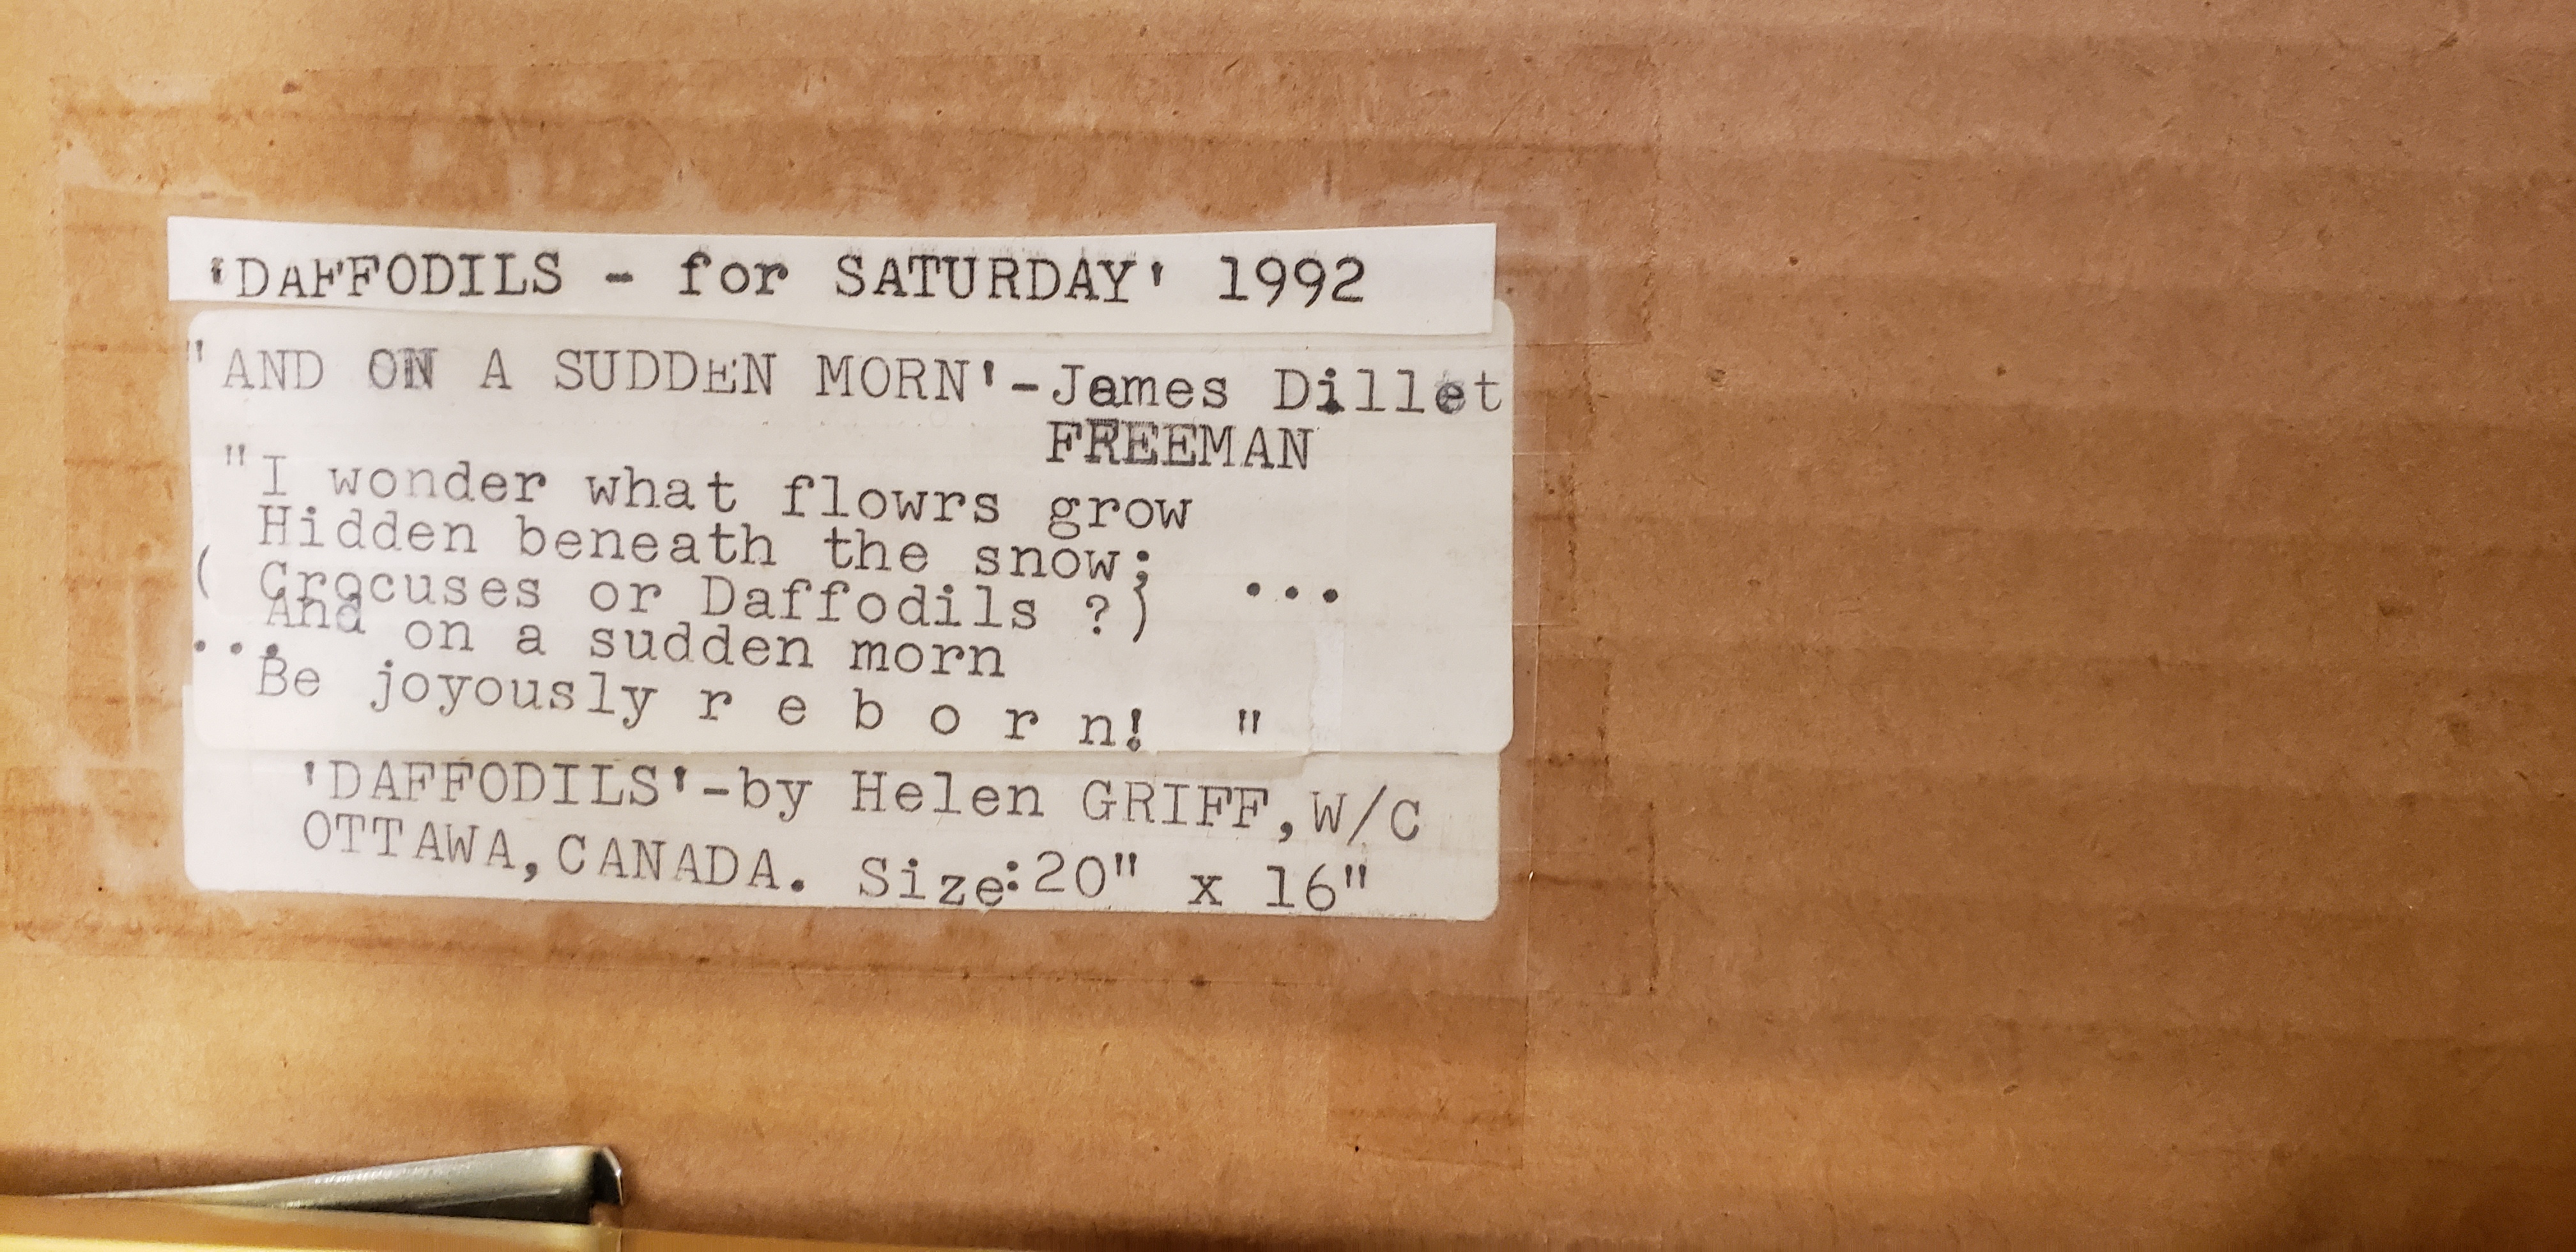 'DAFFODILS - for SATURDAY' 1992
'AND ON A SUDDEN MORN'-James Dillet
FREEMAN
"I wonder what flowrs grow
Hidden beneath the snow;
( Crocuses or Daffodils ?) ...
... And on a sudden morn
Be joyously r e b o r n! "
'DAFFODILS'-by Helen GRIFF,W/C
OTTAWA,CANADA. Size:20" x 16"